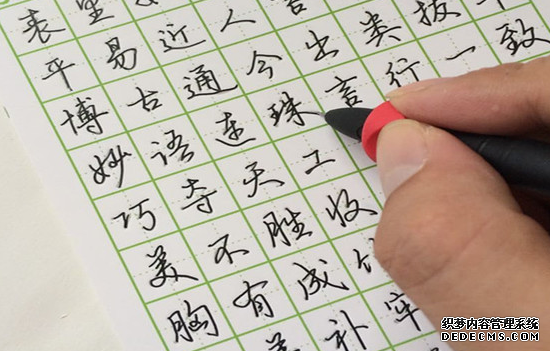 表里
平易近人
博古通今出类拔
妙语连珠言行一致
巧夺天工
美不胜收
胸有成
补牢
织梦内容管理系统
DEDECMS.COM